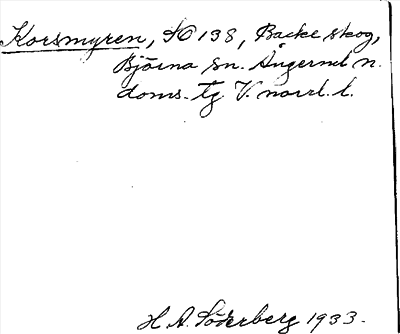 Korsmyren, SO 138, Backe skog,
Björna sn. Ångerml n.
doms. tg V. norrl. l.
H. A. Söderberg 1933.